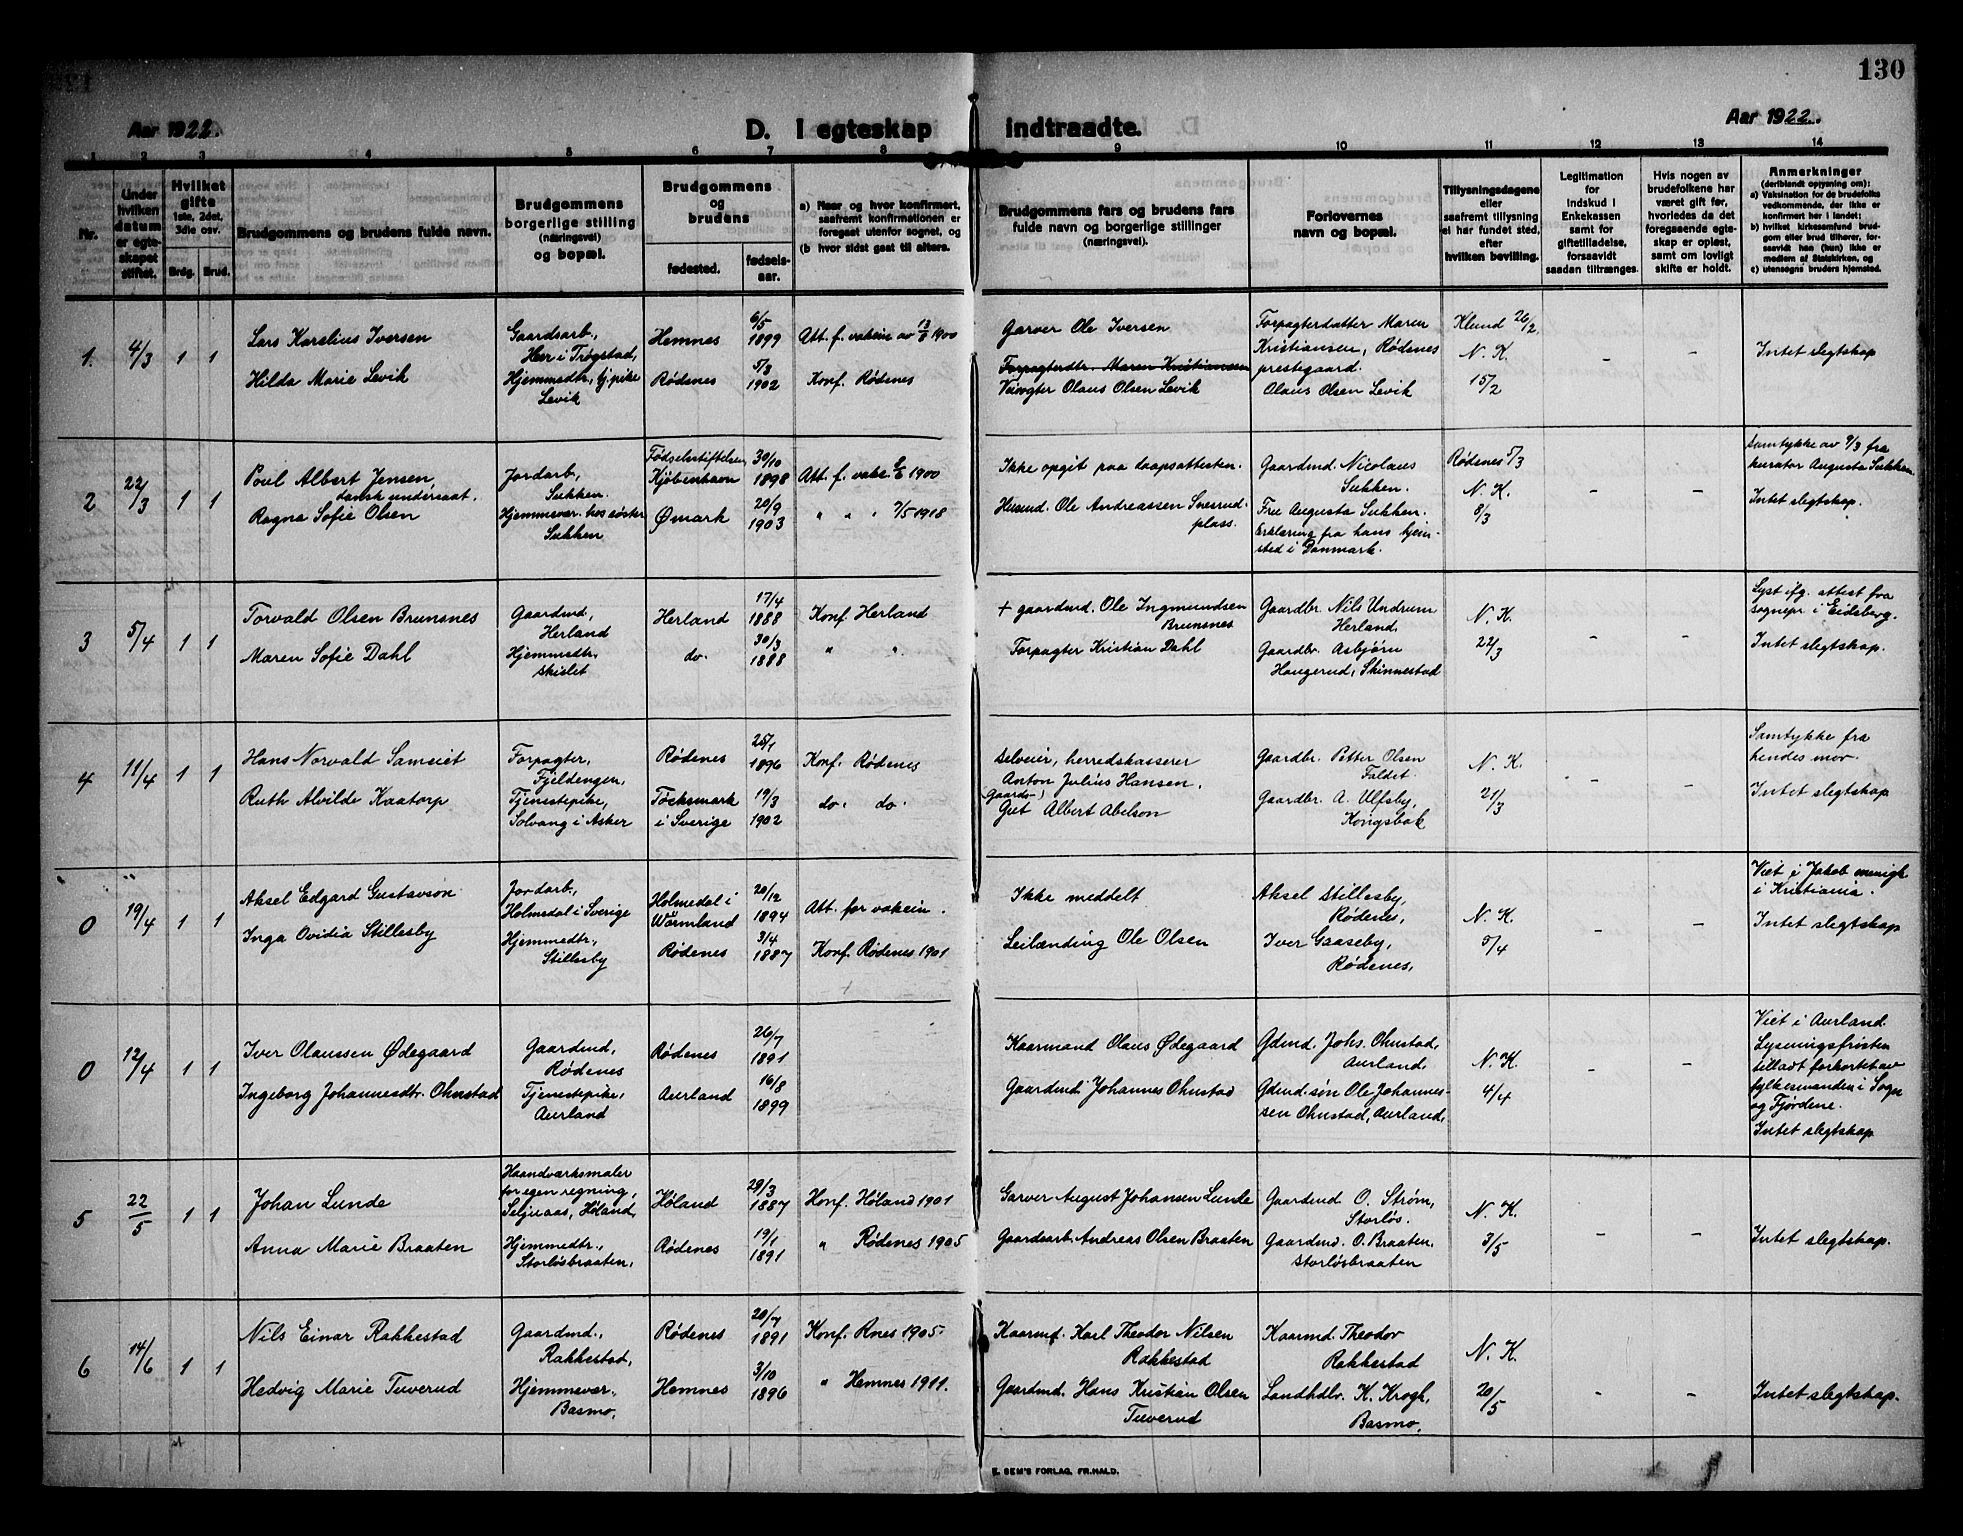 130
Aar 1922.
D. I egteskap indtraadte.
Aar 1922.
1 2 3 4 5 6 7 8 9 10 11 12 13 14
Nr.
Under hvilken datum er egteskapet stiftet.
Hvilket gifte
1ste, 2det, 3die osv.
Brdg. Brud.
Brudgommens og brudens fulde navn.
Brudgommens
borgerlige stilling
(næringsvei)
og bopæl.
Brudgommens
og
brudens
fødested.
fødselsaar.
a) Naar og hvor konfirmert,
saafremt konfirmationen er
foregaat utenfor sognet, og
(b hvor sidst gaat til alters.
Brudgommens fars og brudens fars
fulde navn og borgerlige stillinger
(næringsvei).
Forlovernes
navn og bopæl.
Tillysningsdagene
eller
saafremt tillysning
ei har fundet sted,
efter
hvilken bevilling.
Legitimation
for
indskud i
Enkekassen
samt for
giftetilladelse,
forsaavidt
saadan tiltrænges.
Hvis nogen av
brudefolkene har
været gift før,
hvorledes da det
foregaaende egteskap er opløst,
samt om lovligt
skifte er holdt.
Anmerkninger
(deriblandt opysning om):
a) Vaksination for de brudefolks
vedkommende, der ikke er
konfirmert her i landet;
b) hvilket kirkesamfund brudgom eller brud tilhører, forsaavidt han (hun) ikke er
medlem af Statskirken, og
c) utensogns bruders hjemsted.
1. 4/3 1 1
Lars Karelius Iversen
Hilda Marie Levik
Gaardsarb.,
Herr i Trøgstad,
Hjemmedtr., tj.pike
Levik
Hemnes 6/5 1899
Rødenes 5/3 1902
Att. f. vakcin av 1900
Konf. Rødenes
Garver Ole Iversen
Forpagterdtr. Maren Kristiansen
Olaus Olsen Levik
Forpagterdatter Maren
Kristiansen, Rødenes
prestegaard.
Olaus Olsen Levik
Klund 26/2
N. K.
15/2
- -
Intet slegtskap
2 22/3 1 1
Poul Albert Jensen,
dansk undersaat.
Ragna Sofie Olsen
Jordarb.,
Sukken.
Hjemmevær. hos søster
Sukken
Fødselsstiftelsen
Kjøbenhavn 30/10 1898
Ømark 20/9 1903
Att. f. vaks. 1900
" " " 7/5 1918
Ikke opgit paa daapsattesten.
Husmd. Ole Andreassen Snesrud-
plass.
Gaardmd. Nicolaus
Sukken.
Fru Augusta Sukken.
Erklæring fra hans hjem-
sted i Danmark.
Rødenes 5/3
N. K.
8/3
- -
Samtykke av 9/3 fra
kurator Augusta Sukken.
Intet slegtskap.
3 5/4 1 1
Torvald Olsen Brunsnes
Maren Sofie Dahl
Gaardmd,
Herland
Hjemmedtr.,
Skislet
Herland 17/4 1888
do. 30/3 1888
Konf Herland
" "
+ gaardmd. Ole Ingmundsen
Brunsnes
Forpagter Kristian Dahl
Gaardbr. Nils Undrum
Herland,
Gaardbr. Asbjørn
Haugerud, Skinnestad
N. K.
22/3
- -
Lyst ifg. attest fra
sognepr. i Eidsberg.
Intet slegtskap.
4 11/4 1 1
Hans Norvald Sameiet
Ruth Alvilde Kaatorp
Forpagter,
Fjeldengen,
Tjenestepike,
Solvang i Asker
Rødenes 25/1 1896
Töcksmark
i Sverige 19/3 1902
Konf. Rødenes
do. do.
Selveier, herredskasserer
Anton Julius Hansen.
(Gaards-)
Gut Albert Abelson
Gaardbr. Petter Olsen
Faldet.
Gaardbr. A. Ulfsby,
Kongsbak
N. K.
21/3
- -
Samtykke fra
hendes mor.
Intet slegtskap
0 19/4 1 1
Aksel Edgard Gustavson
Inga Ovidia Stillesby
Jordarb.,
Holmedal i Sverige
Hjemmedtr,
Stillesby
Holmedal i
Wärmland 20/12 1894
Rødenes 3/4 1887
Att. for vakcin.
Konf. Rødenes 1901
Ikke meddelt
Leilænding Ole Olsen
Aksel Stillesby,
Rødenes,
Iver Gaaseby,
Rødenes,
N. K.
5/4
- -
Viet i Jakob menigh
i Kristiania.
Intet slegtskap
0 12/4 1 1
Iver Olaussen Ødegaard
Ingeborg Johannesdtr. Ohnstad
Gaardmd,
Rødenes
Tjenestepike,
Aurland
Rødenes 26/7 1891
Aurland 16/8 1899
Kaarmand Olaus Ødegaard
Gaardmd. Johannes Ohnstad
Gdmd. Johs. Ohnstad,
Aurland,
Gdmd. søn Ole Johannes-
sen Ohnstad, Aurland,
N. K.
4/4
- -
Viet i Aurland.
Lysningsfristen
tilladt forkortet av
fylkesmanden i Sogn
og Fjordene.
Intet slegtskap
5 22/5 1 1
Johan Lunde
Anna Marie Braaten
Haandværksmaler
for egen regning,
Seljuaas, Høland,
Hjemmedtr.,
Storløsbraaten,
Høland 29/3 1887
Rødenes 19/1 1891
Konf. Høland 1901
" Rødenes 1905
Garver August Johansen Lunde
Gaardsarb. Andreas Olsen Braaten
Gaardmd O. Strøm,
Storløs.
Gaardmd. O. Braaten,
Storløsbraaten
N. K.
3/5
- -
Intet slegtskap.
6 14/6 1 1
Nils Einar Rakkestad
Hedvig Marie Tuverud
Gaardmd.,
Rakkestad,
Hjemmevær.,
Basmo,
Rødenes 20/7 1891
Hemnes 3/10 1896
Konf. Rnes 1905.
" Hemnes 1911.
Kaarmd. Karl Theodor Nilsen
Rakkestad
Gaardmd. Hans Kristian Olsen
Tuverud
Kaarmd. Theodor
Rakkestad
Landhdlr. K. Krogh,
Basmo,
N. K.
20/5
- -
Intet slegtskap.
E. SEM'S FORLAG, FR.HALD.